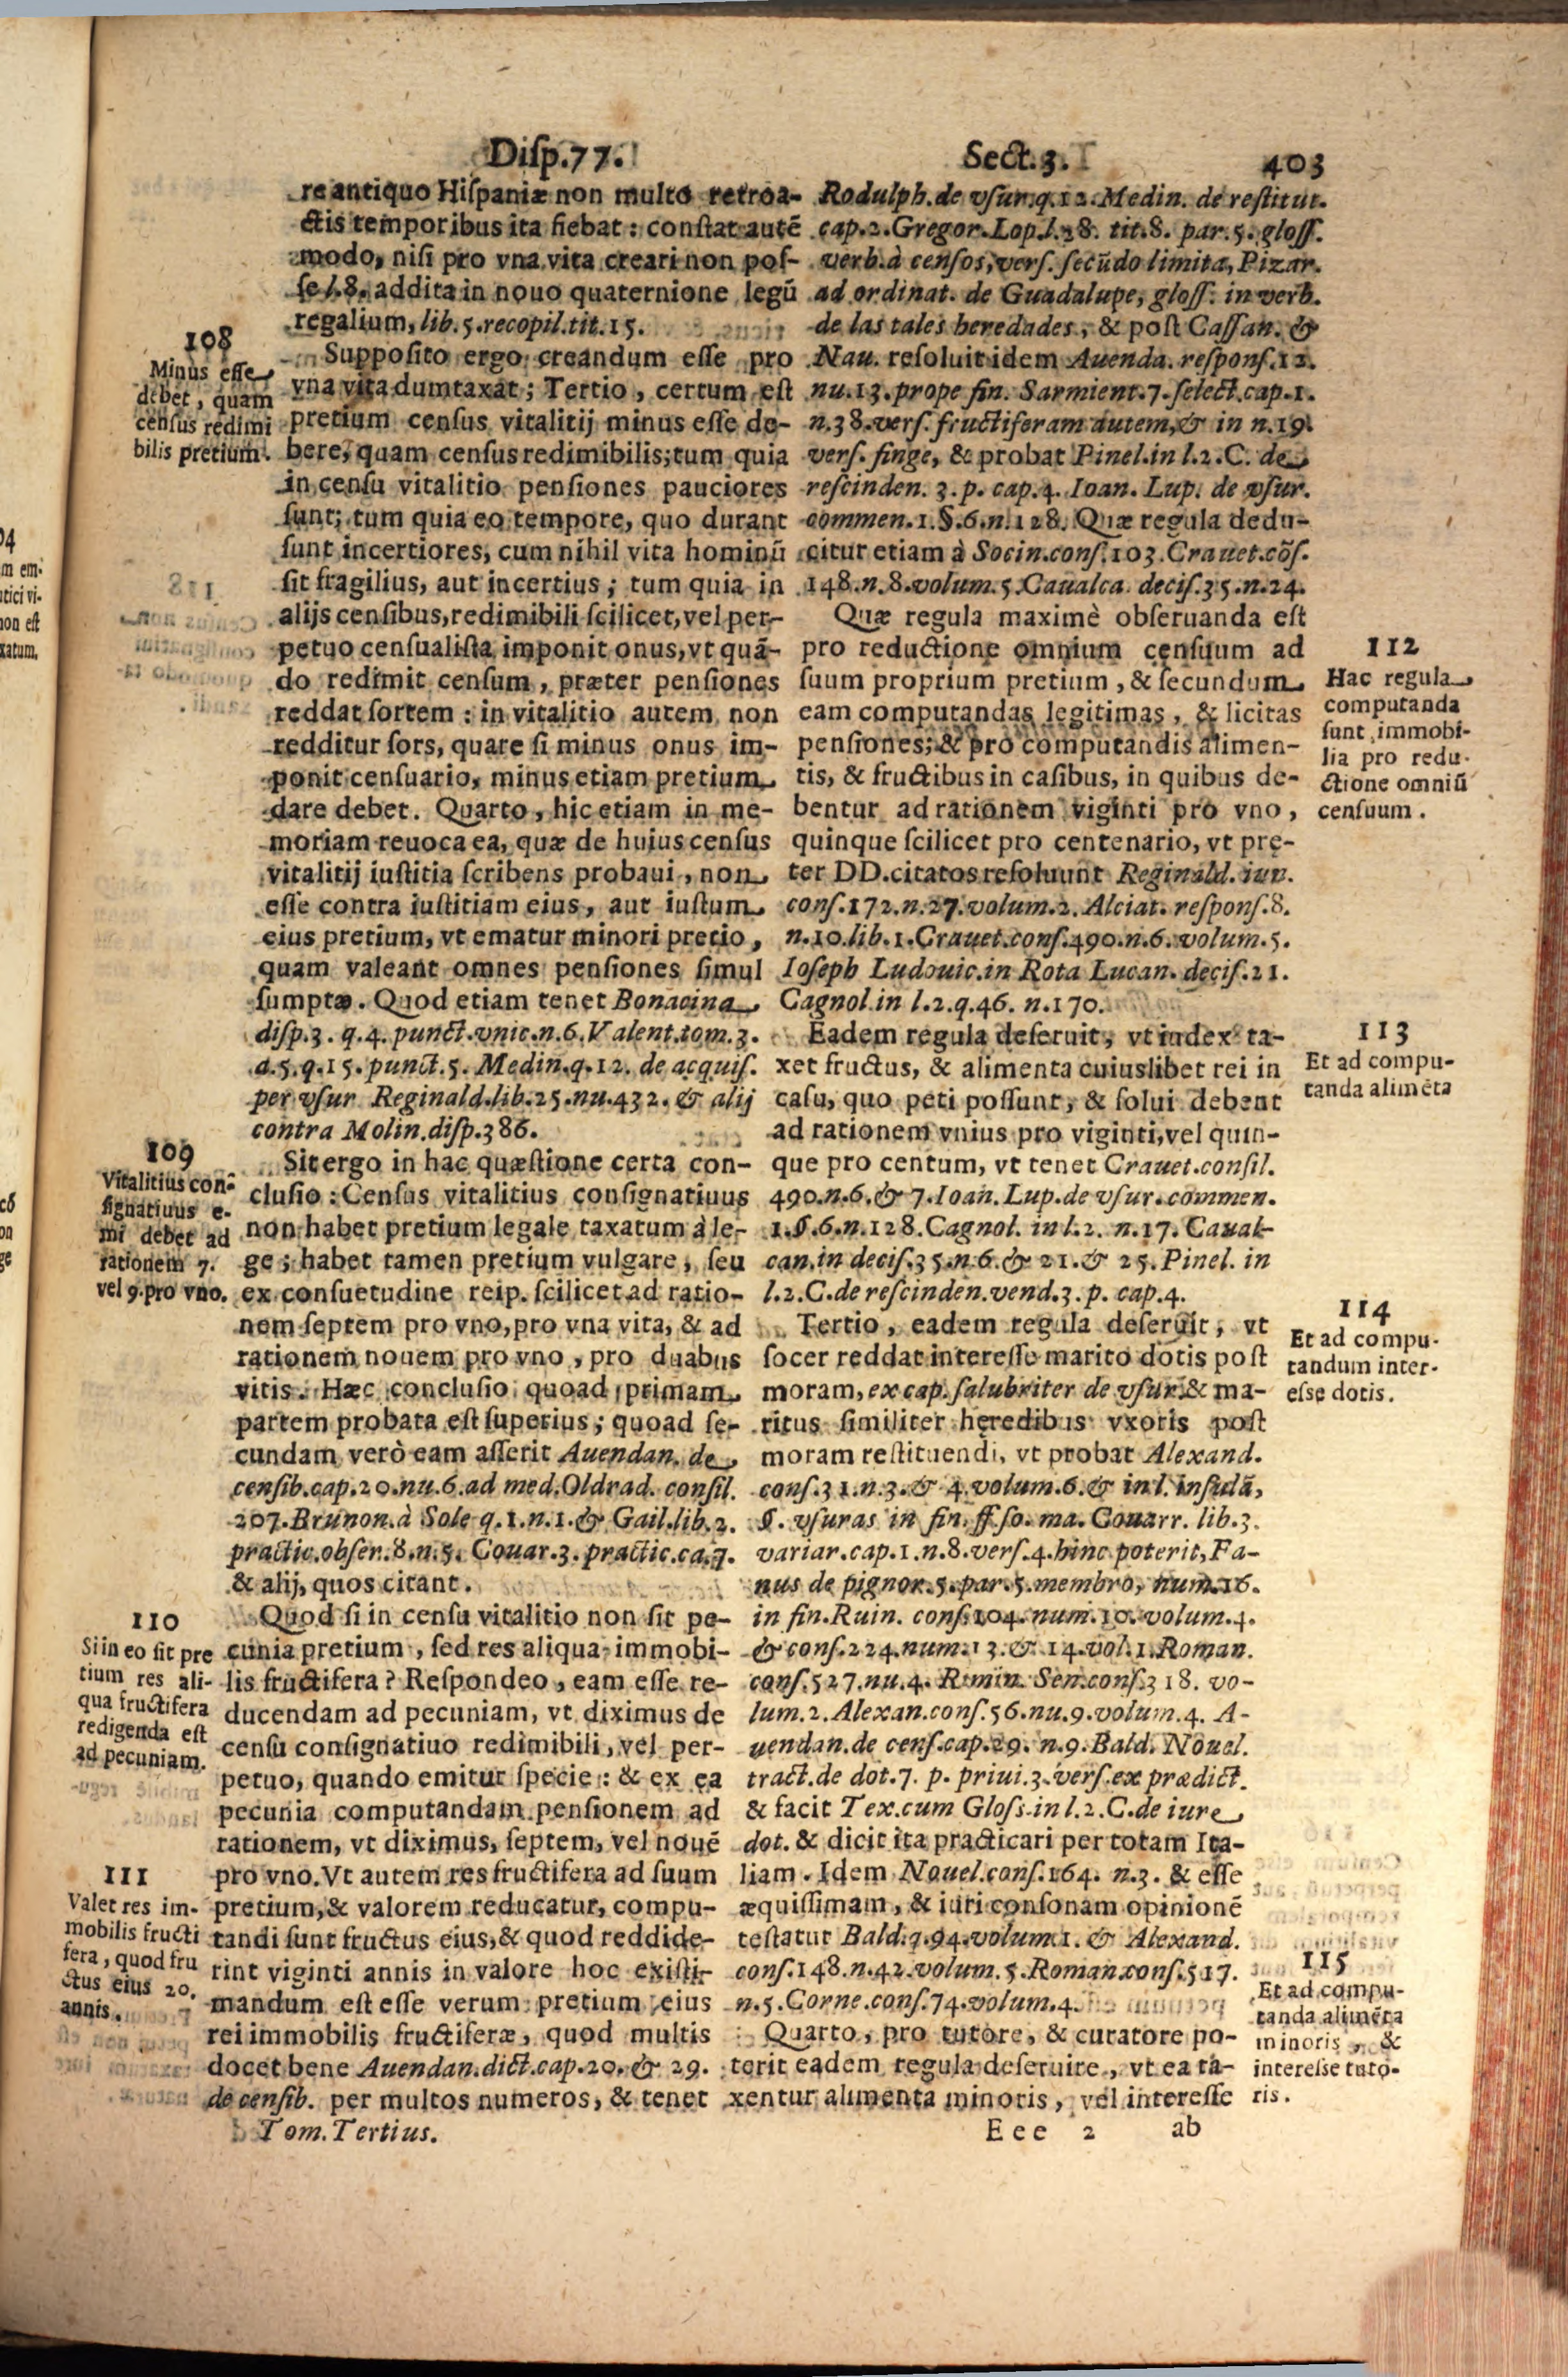 Disp.77. Sect.3. 403
re antiquo Hispaniæ non multo retroa-
ctis temporibus ita fiebat : constat autē
modo, nisi pro vna vita creari non pos-
se l.8. addita in nouo quaternione legū
regalium, lib.5.recopil.tit.15.
108
Minùs esse
debet, quam
census redimi
bilis pretium.
Supposito ergo creandum esse pro
vna vita dumtaxat ; Tertio, certum est
pretium census vitalitij minus esse de-
bere, quam census redimibilis; tum quia
in censu vitalitio pensiones pauciores
sunt; tum quia eo tempore, quo durant
sunt incertiores, cum nihil vita hominū
sit fragilius, aut incertius ; tum quia in
alijs censibus, redimibili scilicet, vel per-
petuo censualista imponit onus, vt quā-
do redimit censum, præter pensiones
reddat sortem : in vitalitio autem non
redditur sors, quare si minus onus im-
ponit censuario, minus etiam pretium
dare debet. Quarto, hic etiam in me-
moriam reuoca ea, quæ de huius census
vitalitij iustitia scribens probaui, non
esse contra iustitiam eius, aut iustum
eius pretium, vt ematur minori pretio,
quam valeant omnes pensiones simul
sumptæ. Quod etiam tenet Bonacina
disp.3. q.4. punct.vnic.n.6.Valent.tom.3.
a.5.q.15.punct.5. Medin.q.12. de acquis.
per vsur Reginald.lib.25.nu.432. & alij
contra Molin.disp.386.
109
Vitalitius con-
signatiuus e-
mi debet ad
rationem 7.
vel 9.pro vno.
Sit ergo in hac quæstione certa con-
clusio : Census vitalitius consignatiuus
non habet pretium legale taxatum à le-
ge ; habet tamen pretium vulgare, seu
ex consuetudine reip. scilicet ad ratio-
nem septem pro vno, pro vna vita, & ad
rationem nouem pro vno, pro duabus
vitis. Hæc conclusio quoad primam
partem probata est superius ; quoad se-
cundam verò eam asserit Auendan. de
censib.cap.20.nu.6.ad med.Oldrad. consil.
207.Brunon.à Sole q.1.n.1.& Gail.lib.2.
practic.obser.8.n.5. Couar.3. practic.ca.7.
& alij, quos citant.
110
Si in eo sit pre
tium res ali-
qua fructifera
redigenda est
ad pecuniam.
Quod si in censu vitalitio non sit pe-
cunia pretium, sed res aliqua immobi-
lis fructifera? Respondeo, eam esse re-
ducendam ad pecuniam, vt diximus de
censu consignatiuo redimibili, vel per-
petuo, quando emitur specie : & ex ea
pecunia computandam pensionem ad
rationem, vt diximus, septem, vel nouē
111
Valet res im-
mobilis fructi
fera, quod fru
ctus eius 20.
annis.
pro vno. Vt autem res fructifera ad suum
pretium, & valorem reducatur, compu-
tandi sunt fructus eius, & quod reddide-
rint viginti annis in valore hoc existi-
mandum est esse verum pretium eius
rei immobilis fructiferæ, quod multis
docet bene Auendan.dict.cap.20. & 29.
de censib. per multos numeros, & tenet
Tom.Tertius.
Rodulph.de vsur.q.12.Medin. de restitut.
cap.2.Gregor.Lop.l.28. tit.8. par.5. gloss.
verb.à censos, vers. secūdo limita, Pizar.
ad ordinat. de Guadalupe, gloss. in verb.
de las tales heredades, & post Cassan. &
Nau. resoluit idem Auenda. respons.12.
nu.13.prope fin. Sarmient.7.select.cap.1.
n.38.vers.fructiferam autem, & in n.19.
vers. finge, & probat Pinel.in l.2.C. de
rescinden. 3.p. cap.4. Ioan. Lup. de vsur.
commen.1.§.6.n.128. Quæ regula dedu-
citur etiam à Socin.cons.103.Crauet.cōs.
148.n.8.volum.5.Caualca. decis.35.n.24.
112
Hac regula
computanda
sunt immobi-
lia pro redu-
ctione omniū
censuum.
Quæ regula maximè obseruanda est
pro reductione omnium censuum ad
suum proprium pretium, & secundum
eam computandas legitimas, & licitas
pensiones; & pro computandis alimen-
tis, & fructibus in casibus, in quibus de-
bentur ad rationem viginti pro vno,
quinque scilicet pro centenario, vt prę-
ter DD.citatos resoluunt Reginald. iun.
cons.172.n.27.volum.2. Alciat. respons.8.
n.10.lib.1.Crauet.cons.490.n.6. volum.5.
Ioseph Ludouic.in Rota Lucan. decis.21.
Cagnol.in l.2.q.46. n.170.
113
Et ad compu-
tanda alimēta
Eadem regula deseruit, vt iudex ta-
xet fructus, & alimenta cuiuslibet rei in
casu, quo peti possunt, & solui debent
ad rationem vnius pro viginti, vel quin-
que pro centum, vt tenet Crauet.consil.
490.n.6.& 7.Ioan. Lup.de vsur.commen.
1.§.6.n.128.Cagnol. in l.2. n.17. Caual-
can.in decis.35.n.6.& 21.& 25.Pinel. in
l.2.C.de rescinden.vend.3.p. cap.4.
114
Et ad compu-
tandum inter-
esse dotis.
Tertio, eadem regula deseruit, vt
socer reddat interesse marito dotis post
moram, ex cap. salubriter de vsur. & ma-
ritus similiter hęredibus vxoris post
moram restituendi, vt probat Alexand.
cons.31.n.3.& 4.volum.6.& in l. insulā,
§. vsuras in fin.ff.so. ma. Couarr. lib.3.
variar.cap.1.n.8.vers.4.hinc poterit, Fa-
nus de pignor.5.par.5.membro, num.16.
in fin.Ruin. cons.104. num.10. volum.4.
& cons.224.num.13.& 14.vol.1.Roman.
cons.527.nu.4. Rimin. Sen.cons.318. vo-
lum.2.Alexan.cons.56.nu.9.volum.4. A-
uendan.de cens.cap.29. n.9.Bald. Nouel.
tract.de dot.7. p. priui.3.vers.ex prædict.
& facit Tex.cum Gloss.in l.2.C.de iure
dot. & dicit ita practicari per totam Ita-
liam. Idem Nouel.cons.164. n.3. & esse
æquissimam, & iuri consonam opinionē
testatur Bald.q.94.volum.1. & Alexand.
cons.148.n.42.volum.5.Roman.cons.517.
n.5.Corne.cons.74.volum.4.
115
Et ad compu-
tanda alimēta
minoris, &
interesse tuto-
ris.
Quarto, pro tutore, & curatore po-
terit eadem regula deseruire, vt ea ta-
xentur alimenta minoris, vel interesse
Eee 2 ab